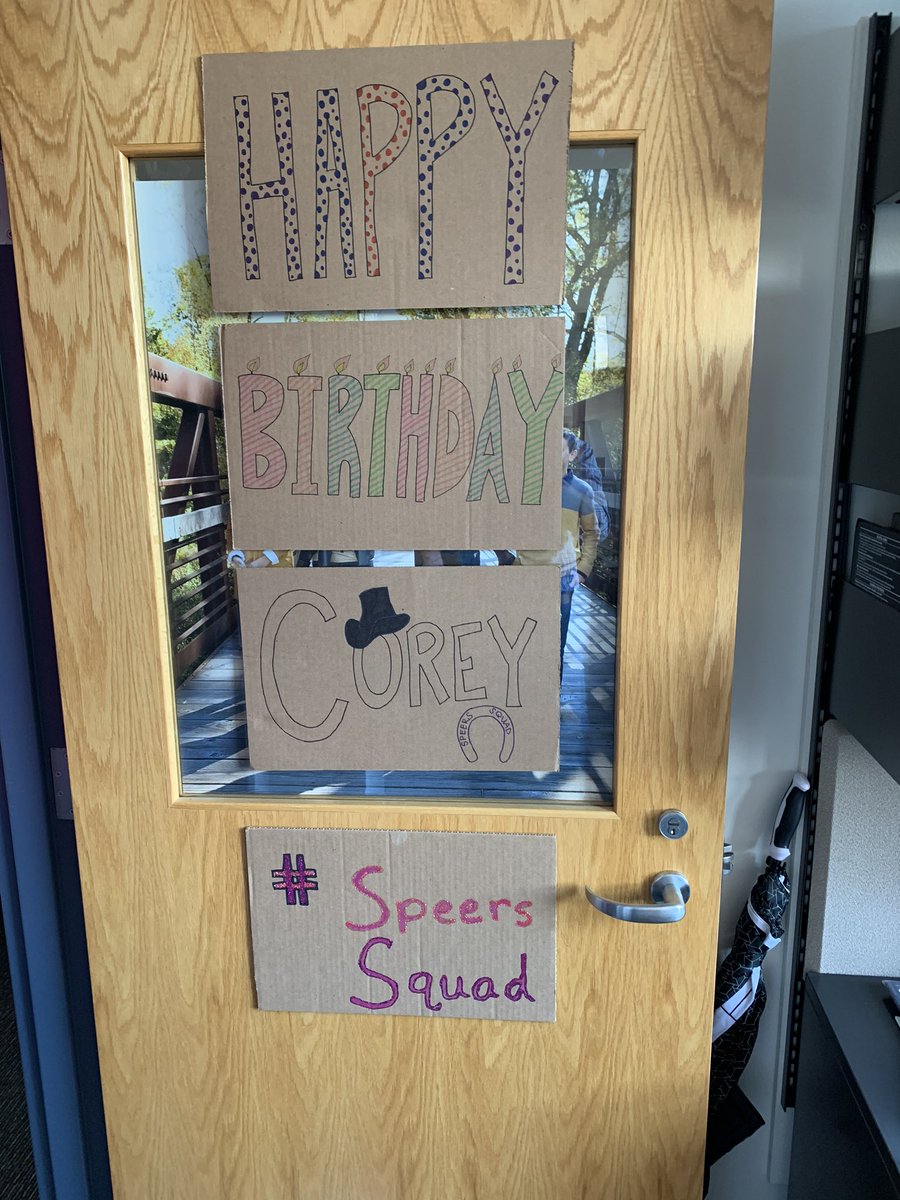 HAPPY
BIRTHDAY
COREY
SPEERS SQUAD
# Speers
Squad